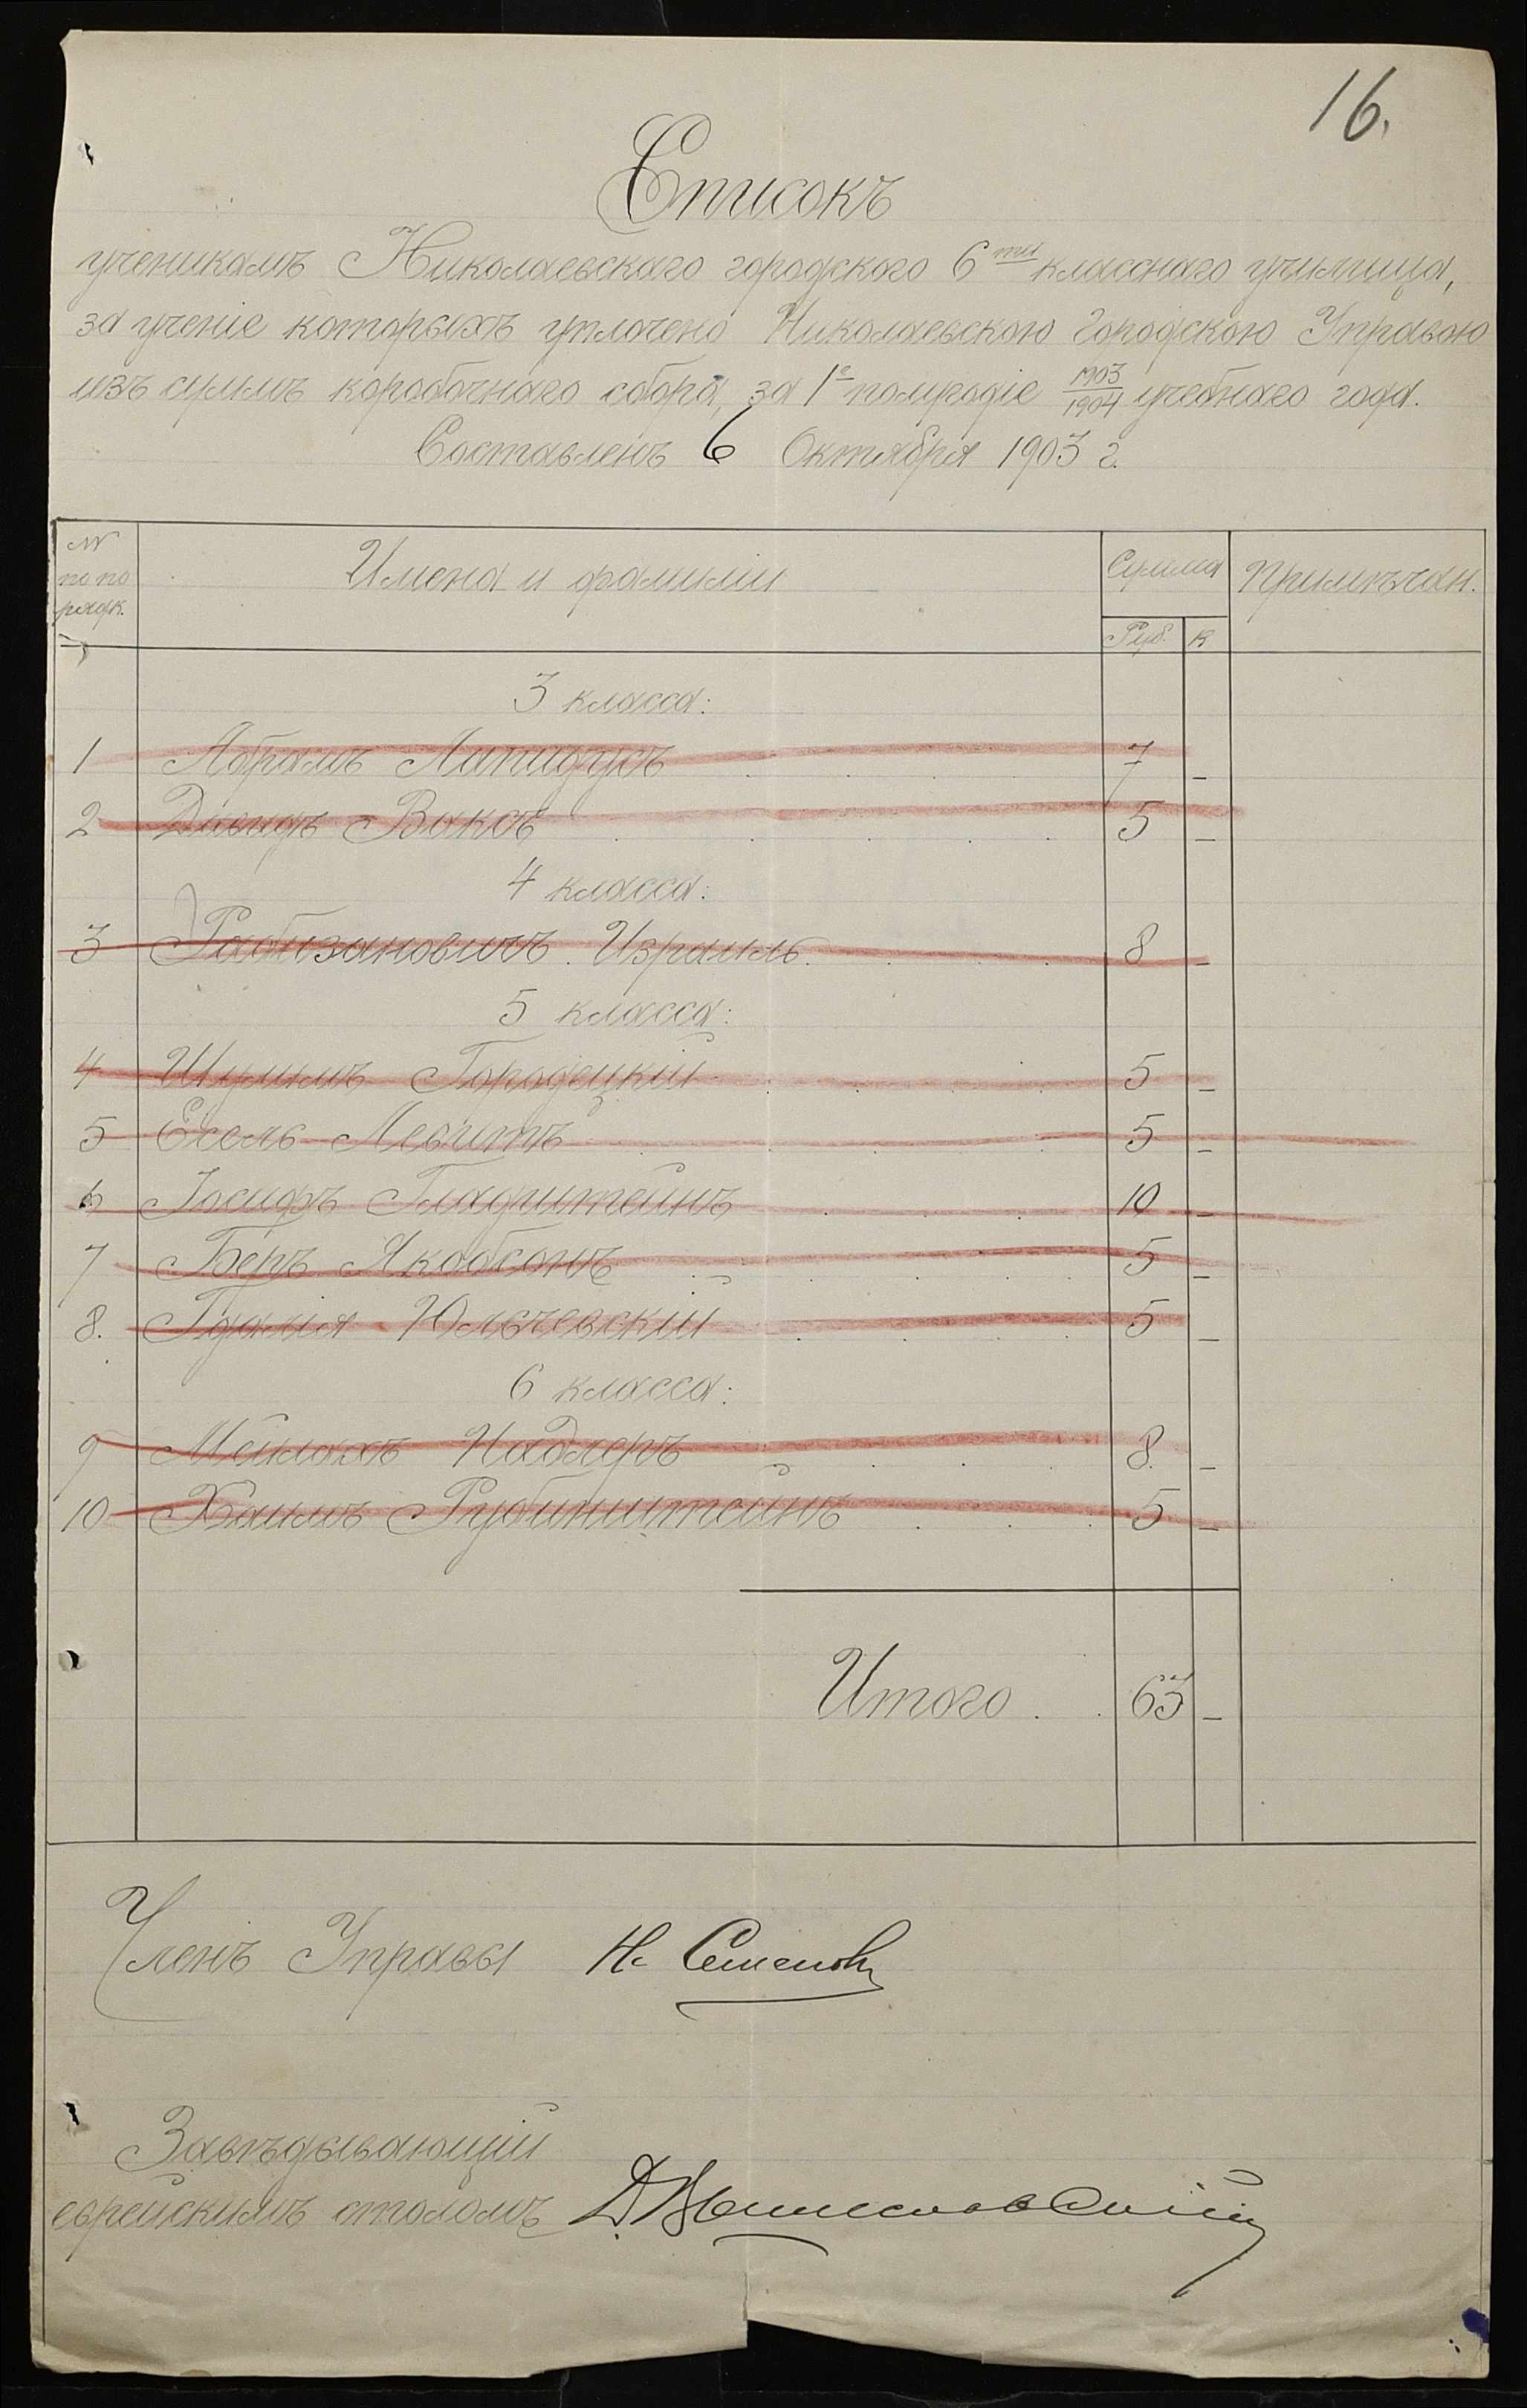 16.
Списокъ
ученикамъ Николаевскаго городского 6ти класснаго училища,
за ученіе которыхъ уплочено Николаевскою Городскою Управою
изъ суммъ коробочнаго сбора, за 1е полугодіе 1903/1904 учебнаго года.
Составленъ 6 Октября 1903 г.
№ по порядк. Имена и фамиліи Сумма Примѣчан.
Руб. К
3 класса:
1 Абрамъ Лапидусъ 7 –
2 Давидъ Ваксъ 5 –
4 класса:
3 Рабизановичъ Израиль 8 –
5 класса:
4 Шулимъ Городецкій 5 –
5 Ехель Левитъ 5 –
6 Іосифъ Гладштейнъ 10 –
7 Беръ Якобсонъ 5 –
8. Гдалія Юльчевскій 5 –
6 класса:
9 Мейлахъ Надлеръ 8 –
10 Хаимъ Рубинштейнъ 5 –
Итого 63 –
Членъ Управы Н. Семеновъ
Завѣдывающій
еврейскимъ столомъ Д.